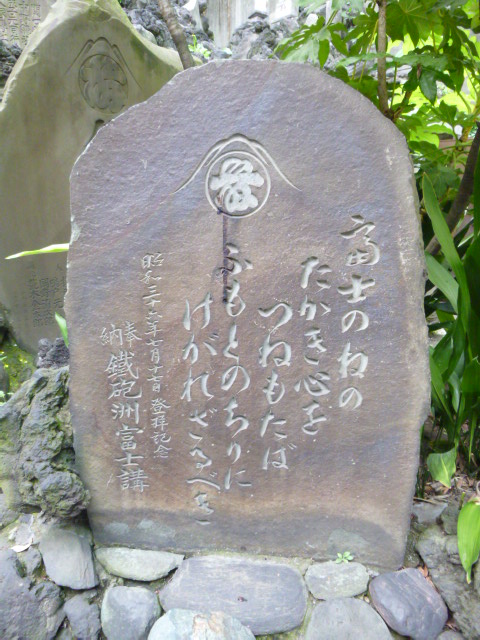 富士のねの
たかき心を
つねもたば
ふもとのちりに
けがれざるべき
昭和三十六年七月十一日登拝記念
奉納 鐵砲洲富士講